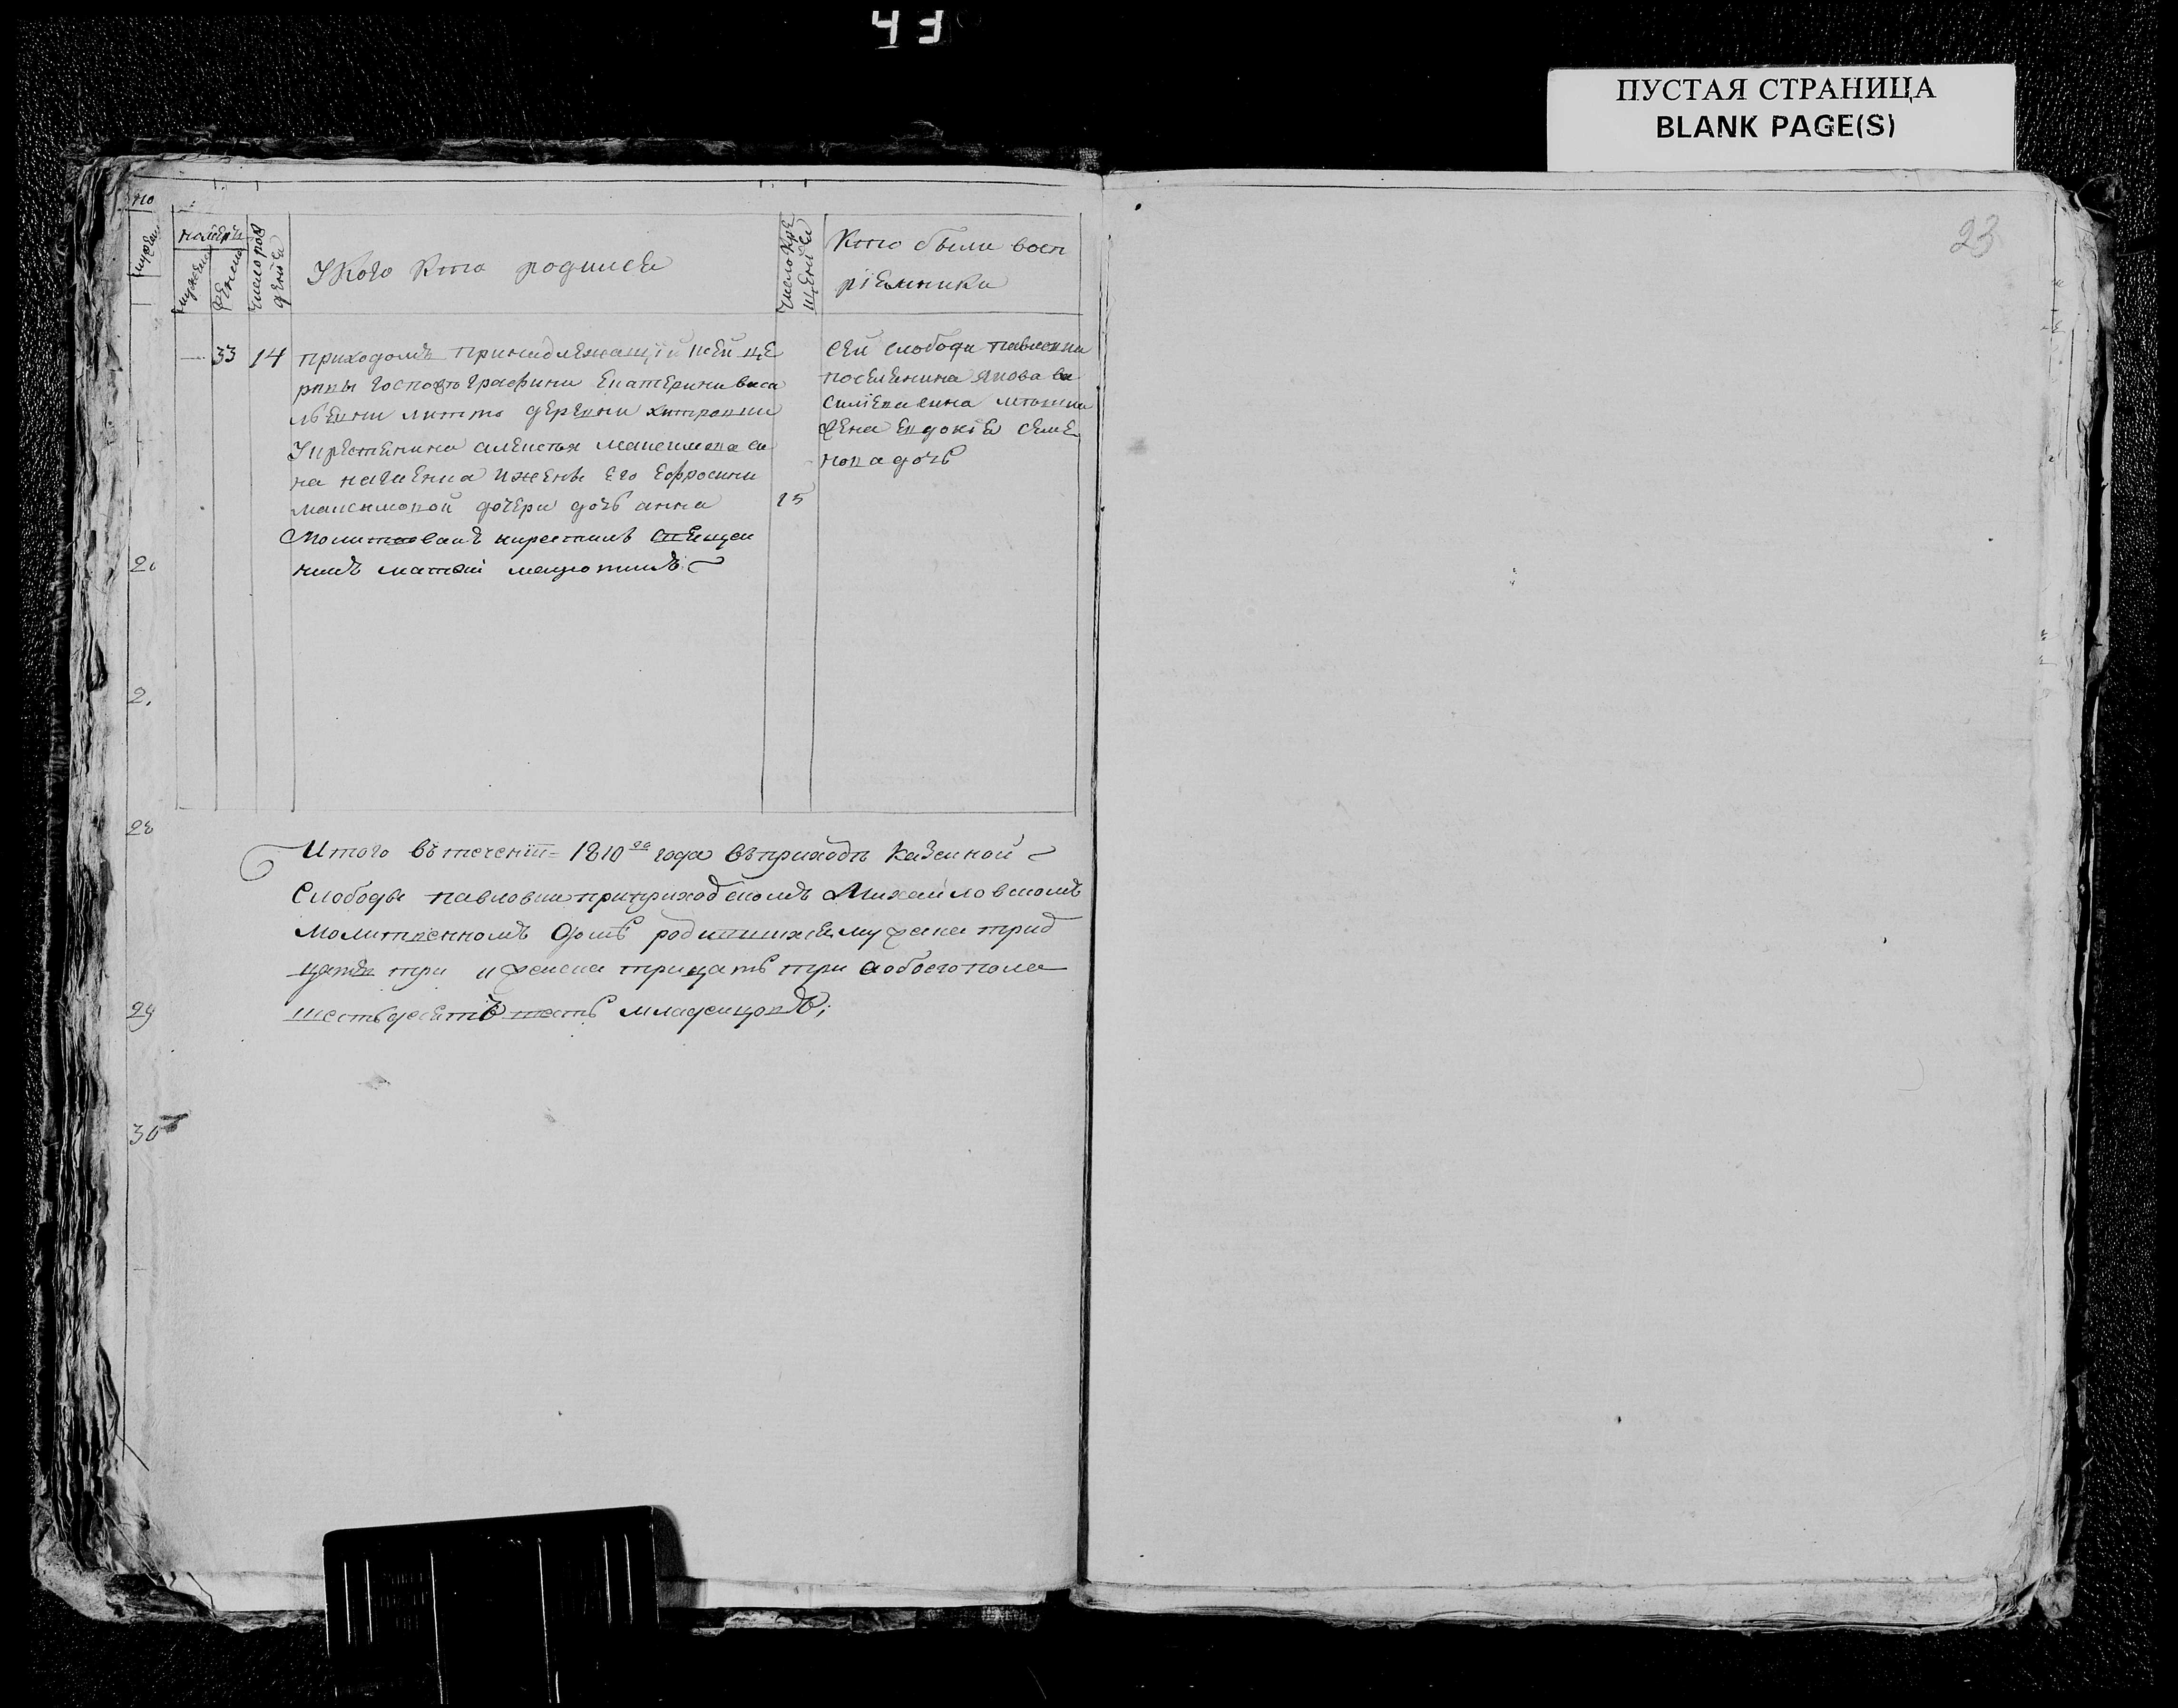 ПУСТАЯ СТРАНИЦА
BLANK PAGE(S)
23
но
номеръ
мужеска
женска
число рож
дения
У Кого кто родился
число кре
щения
Кто были восп
рїемники
33 14 приходомъ принадлежащїй ксей це
рквы госпожы графини Екатерини васи
лъевни литты деревни хитровки
У крестянина алексея максимова си
на и жены его Ефросини
максимовой дочери дочь анна
15
Молитвовалъ икрестилъ священ
никъ матвѣй
сей слободи павловки
поселянина якова ва
силїева сина
жена евдокїя семе
нова дочь
29
30
Итого въ теченїи 1810го года въприходѣ казенной
Слободы павловки приприходскомъ Михайловскомъ
Молитвенномъ домѣ родившихся мужска трид
цать три и женска трицать три аобоего пола
шестьдесятъ шесть младенцовъ;